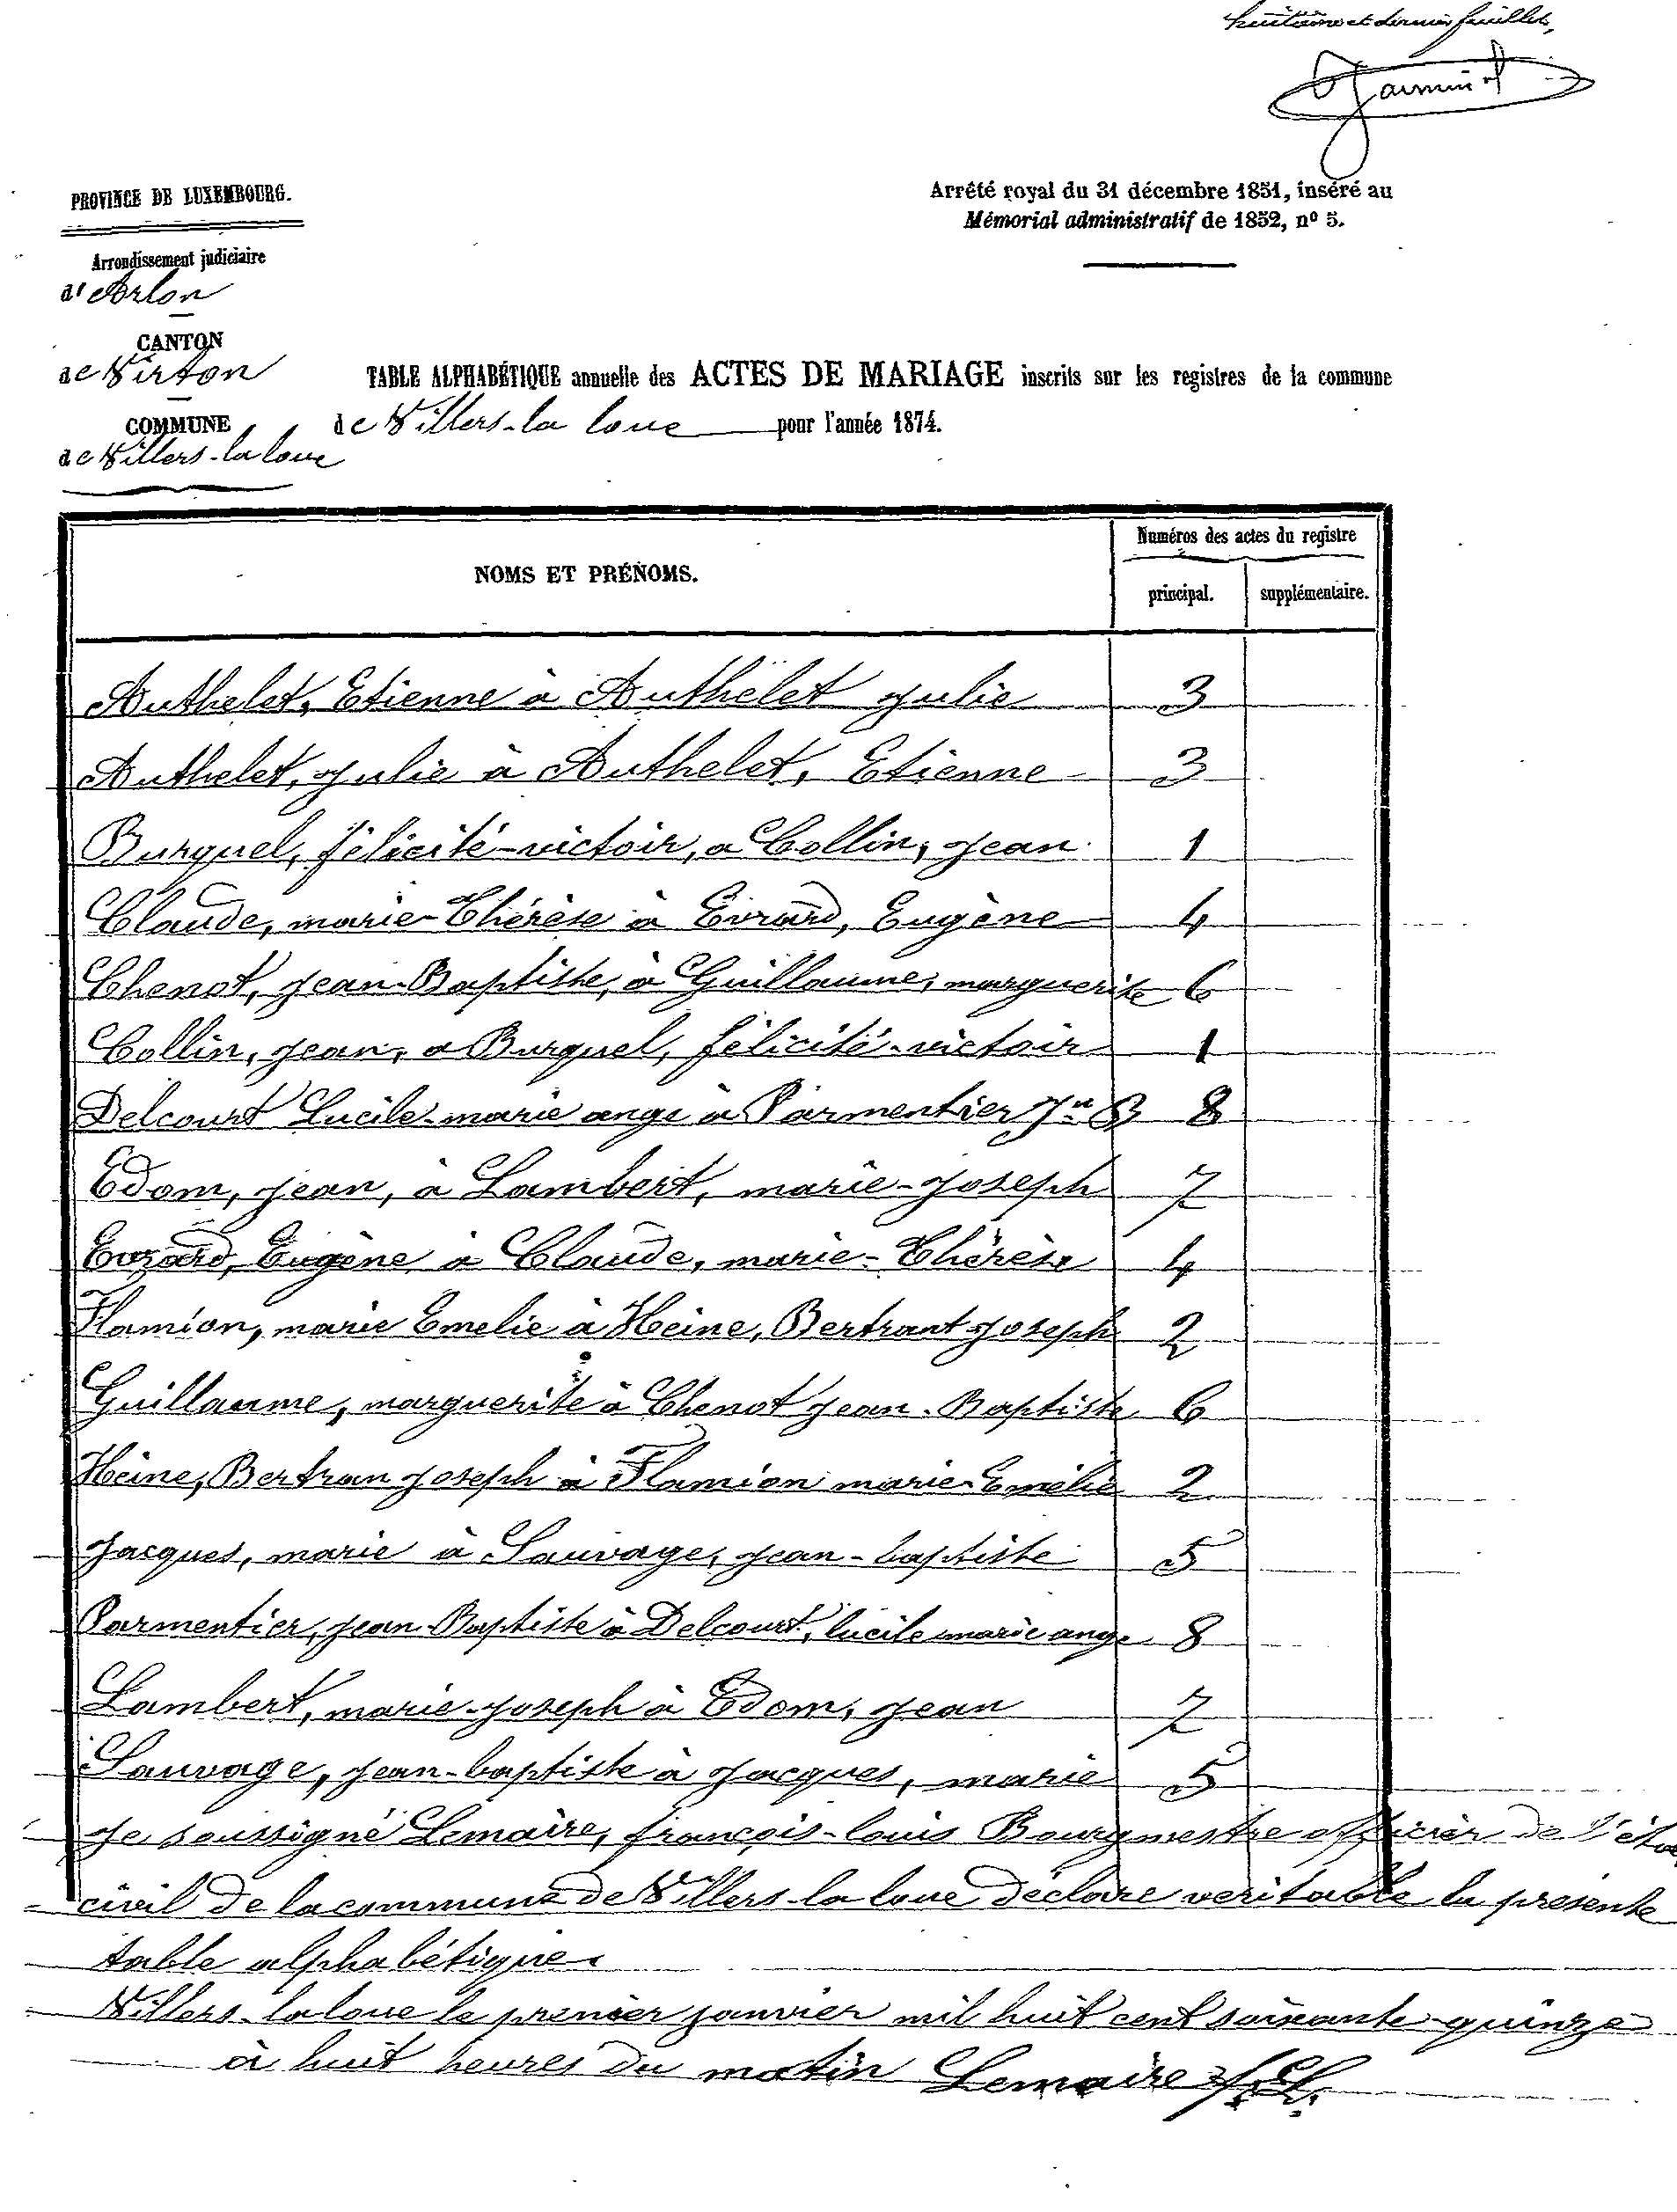 huitième et dernier feuillet,
PROVINCE DE LUXEMBOURG.
Arrêté royal du 31 décembre 1851, inséré au
Mémorial administratif de 1852, nº 5.
Arrondissement judiciaire
d'Arlon
CANTON
de Virton
COMMUNE
de Villers-la loue
TABLE ALPHABÉTIQUE annuelle des ACTES DE MARIAGE inscrits sur les registres de la commune
de Villers-la loue pour l'année 1874.
NOMS ET PRÉNOMS.
Numéros des actes du registre
principal. supplémentaire.
Authelet, Etienne à Authelet Julie 3
Authelet, Julie à Authelet, Etienne 3
Burquel, félicité-victoir, a Collin, Jean 1
Claude, marie-Thérèse à Evrard, Eugène 4
Chenot, Jean-Baptiste, à Guillaume, marguerite 6
Collin, Jean, a Burquel, félicité-victoir 1
Delcourt Lucile-marie ange à Parmentier Jn B 8
Edom, Jean, à Lambert, marie-Joseph 7
Evrard, Eugène à Claude, marie-Thérèse 4
Flamion, marie Emelie à Heine, Bertrant Joseph 2
Guillaume, marguerite à Chenot Jean-Baptiste 6
Heine, Bertran Joseph à Flamion marie-Emélie 2
Jacques, marie à Sauvage, Jean-baptiste 5
Parmentier, Jean-Baptiste à Delcourt, lucile marie ange 8
Lambert, marie-Joseph à Edom, Jean 7
Sauvage, Jean-baptiste à Jacques, marie 5
Je soussigné Lemaire, françois-louis Bourgmestre officier de l'état
civil de la commune de Villers-la loue déclare veritable la présente
table alphabétique.
Villers-la loue le premier janvier mil huit cent soixante-quinze
à huit heures du matin Lemaire f. L.